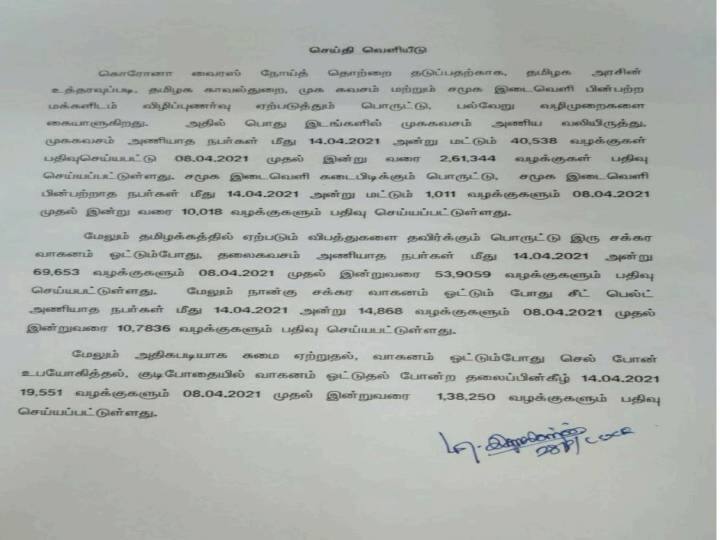 செய்தி வெளியீடு
கொரோனா வைரஸ் நோய்த் தொற்றை தடுப்பதற்காக, தமிழக அரசின்
உத்தரவுப்படி, தமிழக காவல்துறை, முக கவசம் மற்றும் சமூக இடைவெளி பின்பற்ற
மக்களிடம் விழிப்புணர்வு ஏற்படுத்தும் பொருட்டு, பல்வேறு வழிமுறைகளை
கையாளுகிறது. அதில் பொது இடங்களில் முககவசம் அணிய வலியிருத்து,
முககவசம் அணியாத நபர்கள் மீது 14.04.2021 அன்று மட்டும் 40,538 வழக்குகள்
பதிவுசெய்யபட்டு 08.04.2021 முதல் இன்று வரை 2,61,344 வழக்குகள் பதிவு
செய்யப்பட்டுள்ளது. சமூக இடைவெளி கடைபிடிக்கும் பொருட்டு, சமூக இடைவெளி
பின்பற்றாத நபர்கள் மீது 14.04.2021 அன்று மட்டும் 1,011 வழக்குகளும் 08.04.2021
முதல் இன்று வரை 10,018 வழக்குகளும் பதிவு செய்யப்பட்டுள்ளது.
மேலும் தமிழக்கத்தில் ஏற்படும் விபத்துகளை தவிர்க்கும் பொருட்டு இரு சக்கர
வாகனம் ஓட்டும்போது, தலைகவசம் அணியாத நபர்கள் மீது 14.04.2021 அன்று
69,653 வழக்குகளும் 08.04.2021 முதல் இன்றுவரை 53,9059 வழக்குகளும் பதிவு
செய்யபட்டுள்ளது. மேலும் நான்கு சக்கர வாகனம் ஓட்டும் போது சீட் பெல்ட்
அணியாத நபர்கள் மீது 14.04.2021 அன்று 14,868 வழக்குகளும் 08.04.2021 முதல்
இன்றுவரை 10,7836 வழக்குகளும் பதிவு செய்யபட்டுள்ளது.
மேலும் அதிகபடியாக சுமை ஏற்றுதல், வாகனம் ஓட்டும்போது செல் போன்
உபயோகித்தல், குடிபோதையில் வாகனம் ஓட்டுதல் போன்ற தலைப்பின்கீழ் 14.04.2021
19,551 வழக்குகளும் 08.04.2021 முதல் இன்றுவரை 1,38,250 வழக்குகளும் பதிவு
செய்யப்பட்டுள்ளது.